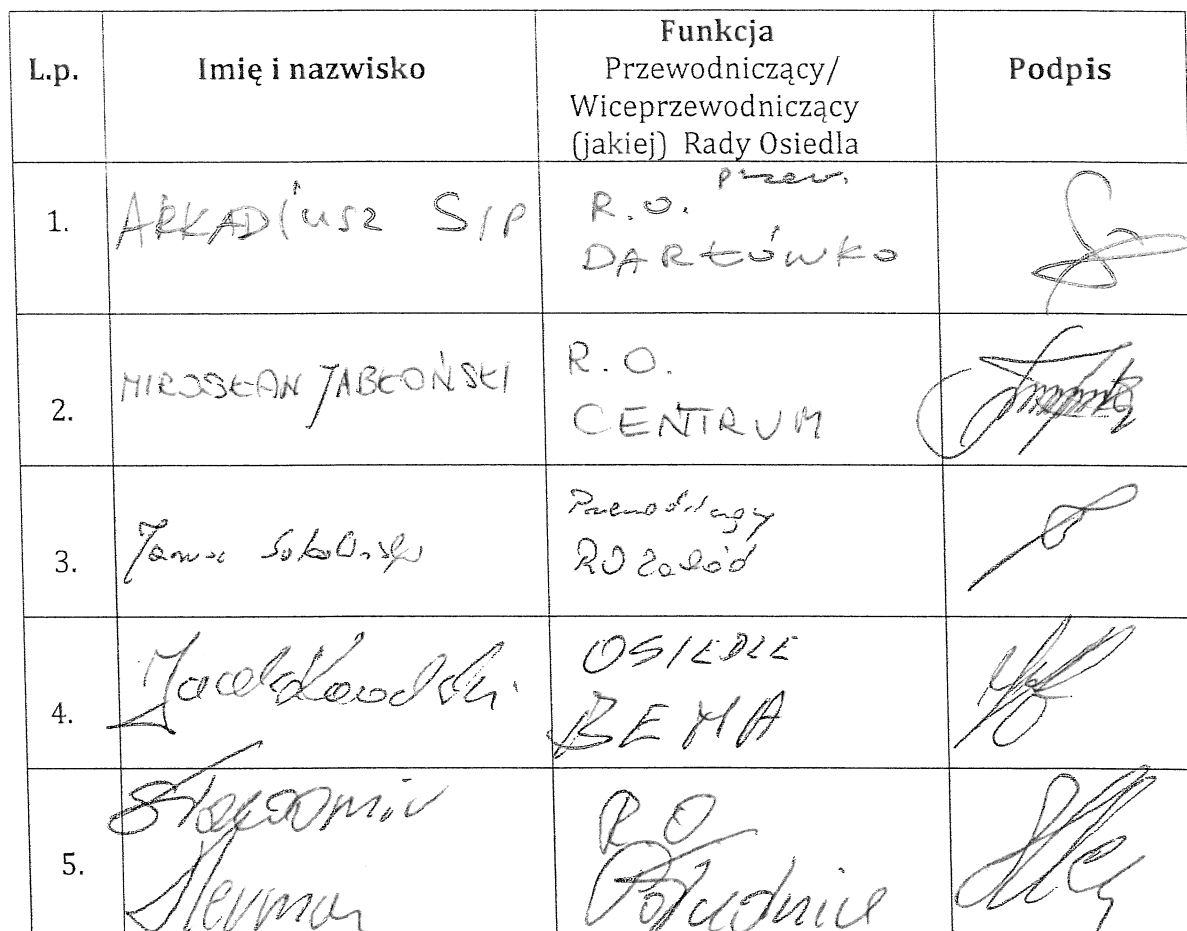 L.p. Imię i nazwisko Funkcja Przewodniczący/ Wiceprzewodniczący (jakiej) Rady Osiedla Podpis
1. ARKADIUSZ SIP R.O. przew. DARŁÓWKO
2. MIROSŁAW JABŁOŃSKI R.O. CENTRUM
3. Przewodniczący RO
4. Jacek OSIEDLE BEMA
5. Sławomir R.O. Południe